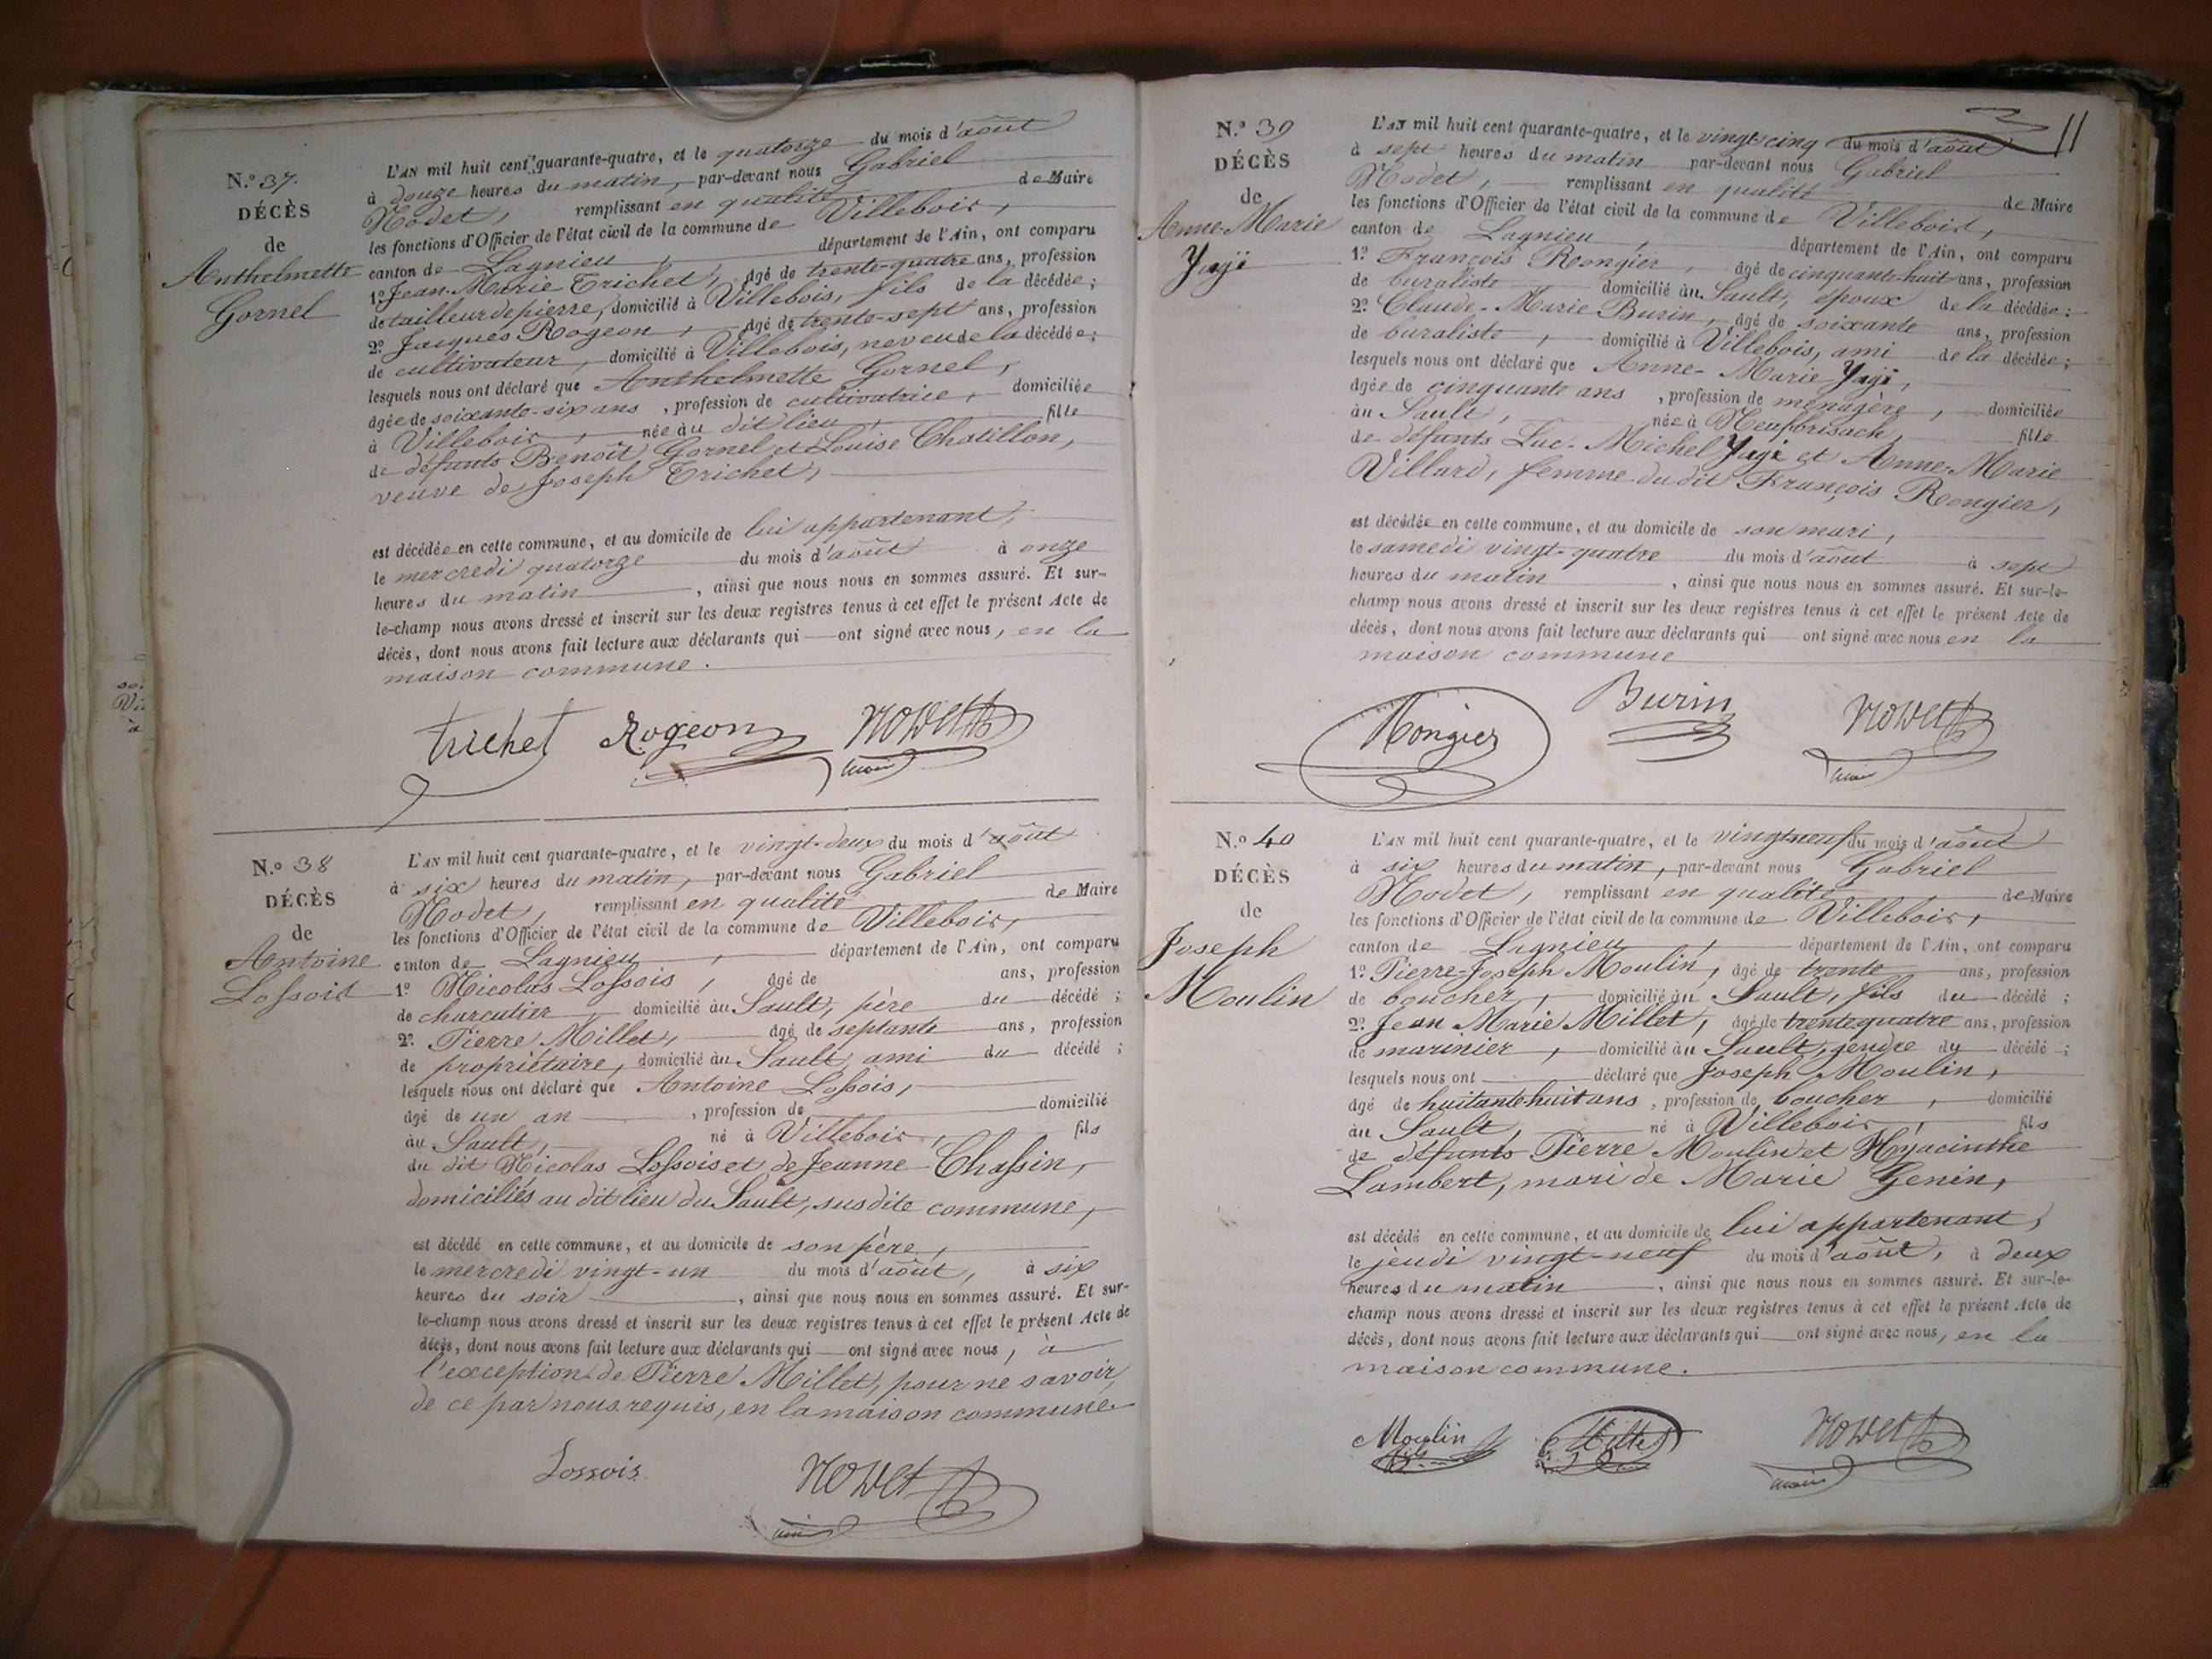 N.º 37.
DÉCÈS
de
Anthelmette
Gornel
L'AN mil huit cent quarante-quatre, et le quatorze du mois d'août
à douze heures du matin, par-devant nous Gabriel
Nodet, remplissant en qualité de Maire
les fonctions d'Officier de l'état civil de la commune de Villebois,
canton de Lagnieu, département de l'Ain, ont comparu
1º Jean-Marie Trichet, âgé de trente-quatre ans, profession
de tailleur de pierre, domicilié à Villebois, fils de la décédée;
2º Jacques Rogeon, âgé de trente-sept ans, profession
de cultivateur, domicilié à Villebois, neveu de la décédée;
lesquels nous ont déclaré que Anthelmette Gornel,
âgée de soixante-six ans, profession de cultivatrice, domiciliée
à Villebois, née au dit lieu, fille
de défunts Benoît Gornel et Louise Chatillon,
veuve de Joseph Trichet,
est décédée en cette commune, et au domicile de lui appartenant,
le mercredi quatorze du mois d'août à onze
heures du matin, ainsi que nous nous en sommes assuré. Et sur-
le-champ nous avons dressé et inscrit sur les deux registres tenus à cet effet le présent Acte de
décès, dont nous avons fait lecture aux déclarants qui ont signé avec nous, en la
maison commune.
trichet Rogeon Nodet
maire
N.º 38
DÉCÈS
de
Antoine
Lossois
L'AN mil huit cent quarante-quatre, et le vingt-deux du mois d'août
à six heures du matin, par-devant nous Gabriel
Nodet, remplissant en qualité de Maire
les fonctions d'Officier de l'état civil de la commune de Villebois,
canton de Lagnieu, département de l'Ain, ont comparu
1º Nicolas Lossois, âgé de ans, profession
de charcutier, domicilié au Sault, père du décédé;
2º Pierre Millet, âgé de septante ans, profession
de propriétaire, domicilié au Sault, ami du décédé;
lesquels nous ont déclaré que Antoine Lossois,
âgé de un an, profession de domicilié
au Sault, né à Villebois, fils
du dit Nicolas Lossois et de Jeanne Chassin,
domiciliés au dit lieu du Sault, susdite commune,
est décédé en cette commune, et au domicile de son père,
le mercredi vingt-un du mois d'août, à six
heures du soir, ainsi que nous nous en sommes assuré. Et sur-
le-champ nous avons dressé et inscrit sur les deux registres tenus à cet effet le présent Acte de
décès, dont nous avons fait lecture aux déclarants qui ont signé avec nous, à
l'exception de Pierre Millet, pour ne savoir,
de ce par nous requis, en la maison commune.
Lossois Nodet
maire
11
N.º 39
DÉCÈS
de
Anne-Marie
Yagi
L'AN mil huit cent quarante-quatre, et le vingt-cinq du mois d'août
à sept heures du matin par-devant nous Gabriel
Nodet, remplissant en qualité de Maire
les fonctions d'Officier de l'état civil de la commune de Villebois,
canton de Lagnieu, département de l'Ain, ont comparu
1º François Rongier, âgé de cinquante-huit ans, profession
de buraliste domicilié au Sault, époux de la décédée;
2º Claude-Marie Burin, âgé de soixante ans, profession
de buraliste, domicilié à Villebois, ami de la décédée;
lesquels nous ont déclaré que Anne-Marie Yagi,
âgée de cinquante ans, profession de ménagère, domiciliée
au Sault, née à Neufbrisach, fille
de défunts Luc-Michel Yagi et Anne-Marie
Villard, femme du dit François Rongier,
est décédée en cette commune, et au domicile de son mari,
le samedi vingt-quatre du mois d'août à sept
heures du matin, ainsi que nous nous en sommes assuré. Et sur-le-
champ nous avons dressé et inscrit sur les deux registres tenus à cet effet le présent Acte de
décès, dont nous avons fait lecture aux déclarants qui ont signé avec nous en la
maison commune
Rongier Burin Nodet
maire
N.º 40
DÉCÈS
de
Joseph
Moulin
L'AN mil huit cent quarante-quatre, et le vingt-neuf du mois d'août
à six heures du matin, par-devant nous Gabriel
Nodet, remplissant en qualité de Maire
les fonctions d'Officier de l'état civil de la commune de Villebois,
canton de Lagnieu, département de l'Ain, ont comparu
1º Pierre-Joseph Moulin, âgé de trente ans, profession
de boucher, domicilié au Sault, fils du décédé;
2º Jean Marie Millet, âgé de trente quatre ans, profession
de marinier, domicilié au Sault, gendre du décédé;
lesquels nous ont déclaré que Joseph Moulin,
âgé de huitante huit ans, profession de boucher, domicilié
au Sault, né à Villebois, fils
de défunts Pierre Moulin et Hyacinthe
Lambert, mari de Marie Genin,
est décédé en cette commune, et au domicile de lui appartenant,
le jeudi vingt-neuf du mois d'août, à deux
heures du matin, ainsi que nous nous en sommes assuré. Et sur-le-
champ nous avons dressé et inscrit sur les deux registres tenus à cet effet le présent Acte de
décès, dont nous avons fait lecture aux déclarants qui ont signé avec nous, en la
maison commune.
Moulin Millet Nodet
fils maire